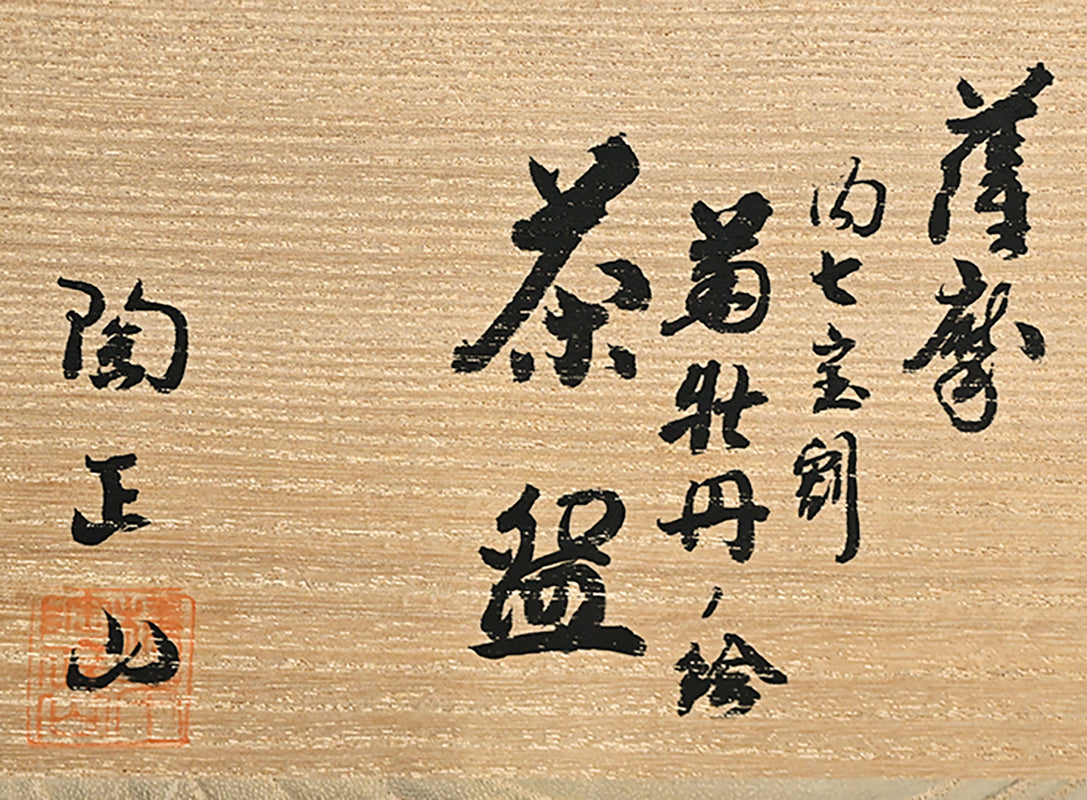 薩摩
内七宝割
菊牡丹ノ絵
茶盌
陶正山